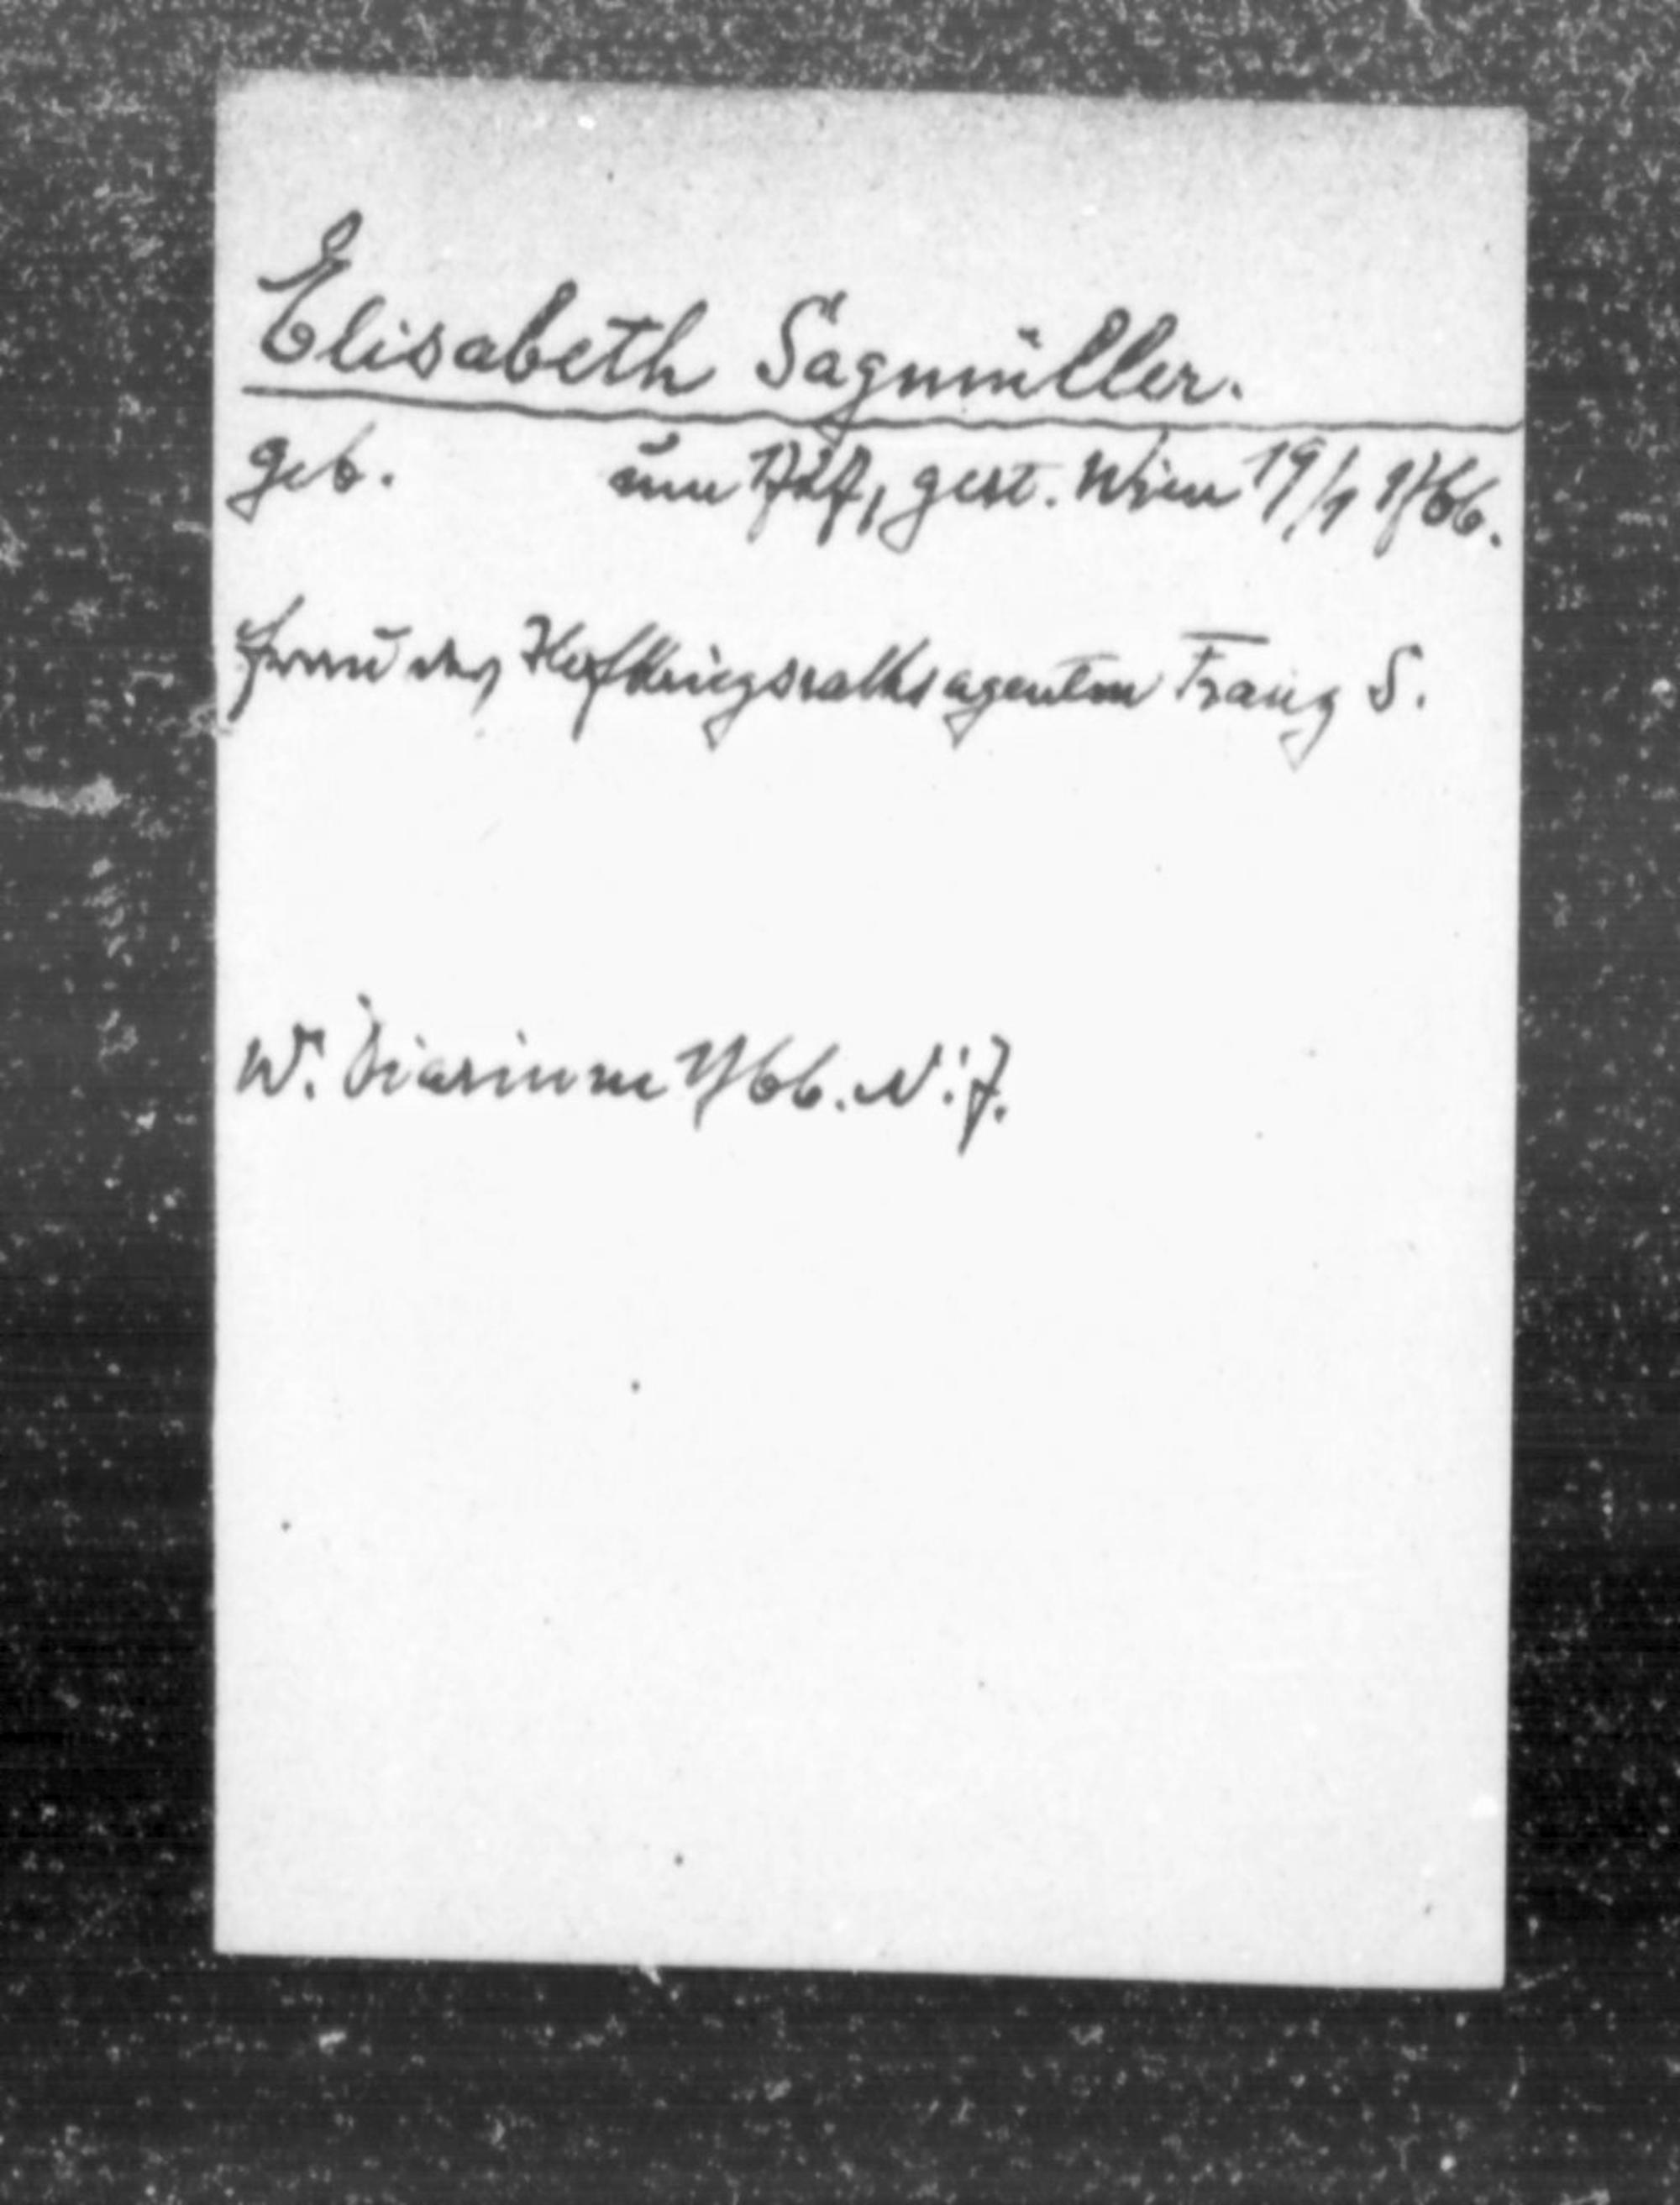 Elisabeth Sagmüller.
geb. um 1727, gest. Wien 19/1 1766.
Frau des Hofkriegsrathsagenten Franz S.
W. Diarium 1766. N: 7.